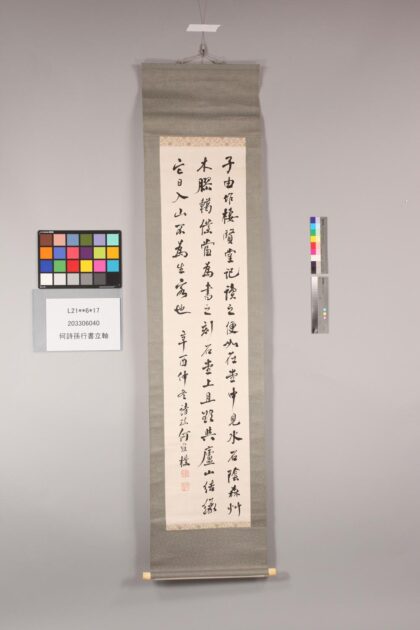 子由作棲賢堂記讀之便如在堂中見水石陰森艸
木膠轕僕當為書之刻石堂上且欲與廬山結緣
它日入山不為生客也 辛酉仲冬詩孫何維樸
L21**6*17
203306040
何詩孫行書立軸